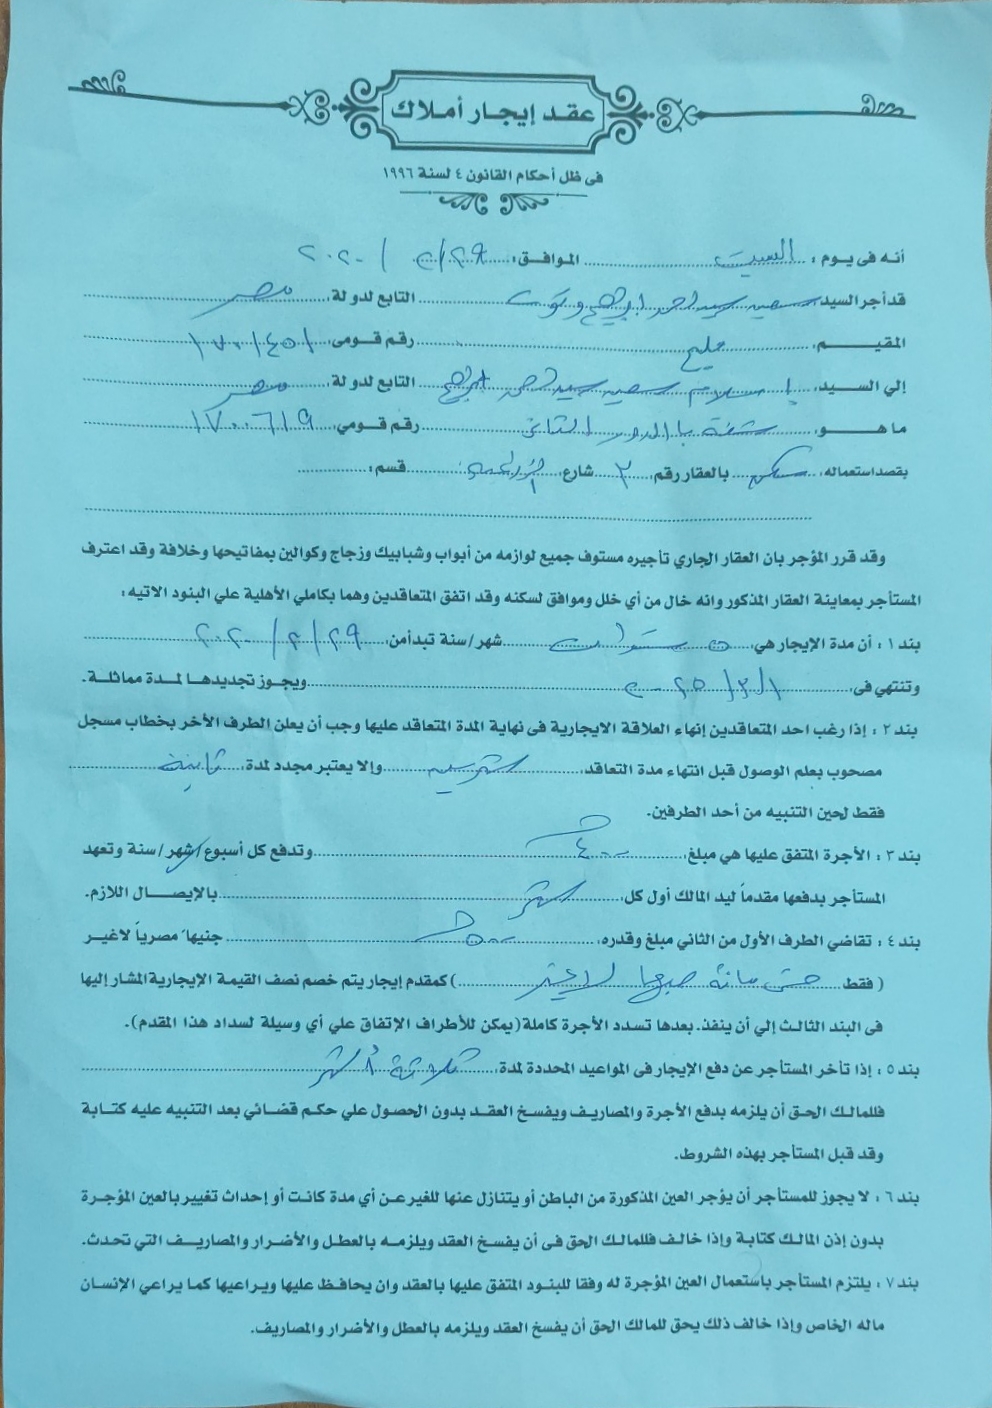 عقد إيجار أملاك
فى ظل أحكام القانون ٤ لسنة ١٩٩٦
أنه فى يوم : السبت الموافق : ٢٩/٢/٢٠٢٠
قد أجر السيد سعيد سيد احمد ابراهيم التابع لدولة مصر
المقيم رقم قومى
إلي السيد، إسلام سعيد سيد احمد ابراهيم التابع لدولة مصر
ما هو شقة بالدور الثانى رقم قومي،
بقصد استعماله، سكن بالعقار رقم ٣ شارع قسم :
وقد قرر المؤجر بان العقار الجاري تأجيره مستوف جميع لوازمه من أبواب وشبابيك وزجاج وكوالين بمفاتيحها وخلافة وقد اعترف
المستأجر بمعاينة العقار المذكور وانه خال من أي خلل وموافق لسكنه وقد اتفق المتعاقدين وهما بكاملي الأهلية علي البنود الاتيه :
بند ١ : أن مدة الإيجار هي ٥ سنوات شهر/سنة تبدأ من ٢٩/٢/٢٠٢٠
وتنتهي فى ١/٣/٢٠٢٥ ويجوز تجديدها لمدة مماثلة.
بند ٢ : إذا رغب احد المتعاقدين إنهاء العلاقة الايجارية فى نهاية المدة المتعاقد عليها وجب أن يعلن الطرف الأخر بخطاب مسجل
مصحوب بعلم الوصول قبل انتهاء مدة التعاقد شهرين وإلا يعتبر مجدد لمدة ثانية
فقط لحين التنبيه من أحد الطرفين.
بند ٣ : الأجرة المتفق عليها هي مبلغ ٤٠٠ وتدفع كل أسبوع/شهر/سنة وتعهد
المستأجر بدفعها مقدماً ليد المالك أول كل شهر بالإيصال اللازم.
بند ٤ : تقاضي الطرف الأول من الثاني مبلغ وقدره ٥٠٠ جنيهاً مصرياً لاغير
( فقط خمسمائة جنيها لا غير ) كمقدم إيجار يتم خصم نصف القيمة الإيجارية المشار إليها
فى البند الثالث إلي أن ينفذ. بعدها تسدد الأجرة كاملة (يمكن للأطراف الإتفاق علي أي وسيلة لسداد هذا المقدم).
بند ٥ : إذا تأخر المستأجر عن دفع الإيجار فى المواعيد المحددة لمدة ثلاثة أشهر
فللمالك الحق أن يلزمه بدفع الأجرة والمصاريف ويفسخ العقد بدون الحصول علي حكم قضائي بعد التنبيه عليه كتابة
وقد قبل المستأجر بهذه الشروط.
بند ٦ : لا يجوز للمستأجر أن يؤجر العين المذكورة من الباطن أو يتنازل عنها للغير عن أي مدة كانت أو إحداث تغيير بالعين المؤجرة
بدون إذن المالك كتابة وإذا خالف فللمالك الحق فى أن يفسخ العقد ويلزمه بالعطل والأضرار والمصاريف التي تحدث.
بند ٧ : يلتزم المستأجر باستعمال العين المؤجرة له وفقا للبنود المتفق عليها بالعقد وان يحافظ عليها ويراعيها كما يراعي الإنسان
ماله الخاص وإذا خالف ذلك يحق للمالك الحق أن يفسخ العقد ويلزمه بالعطل والأضرار والمصاريف.